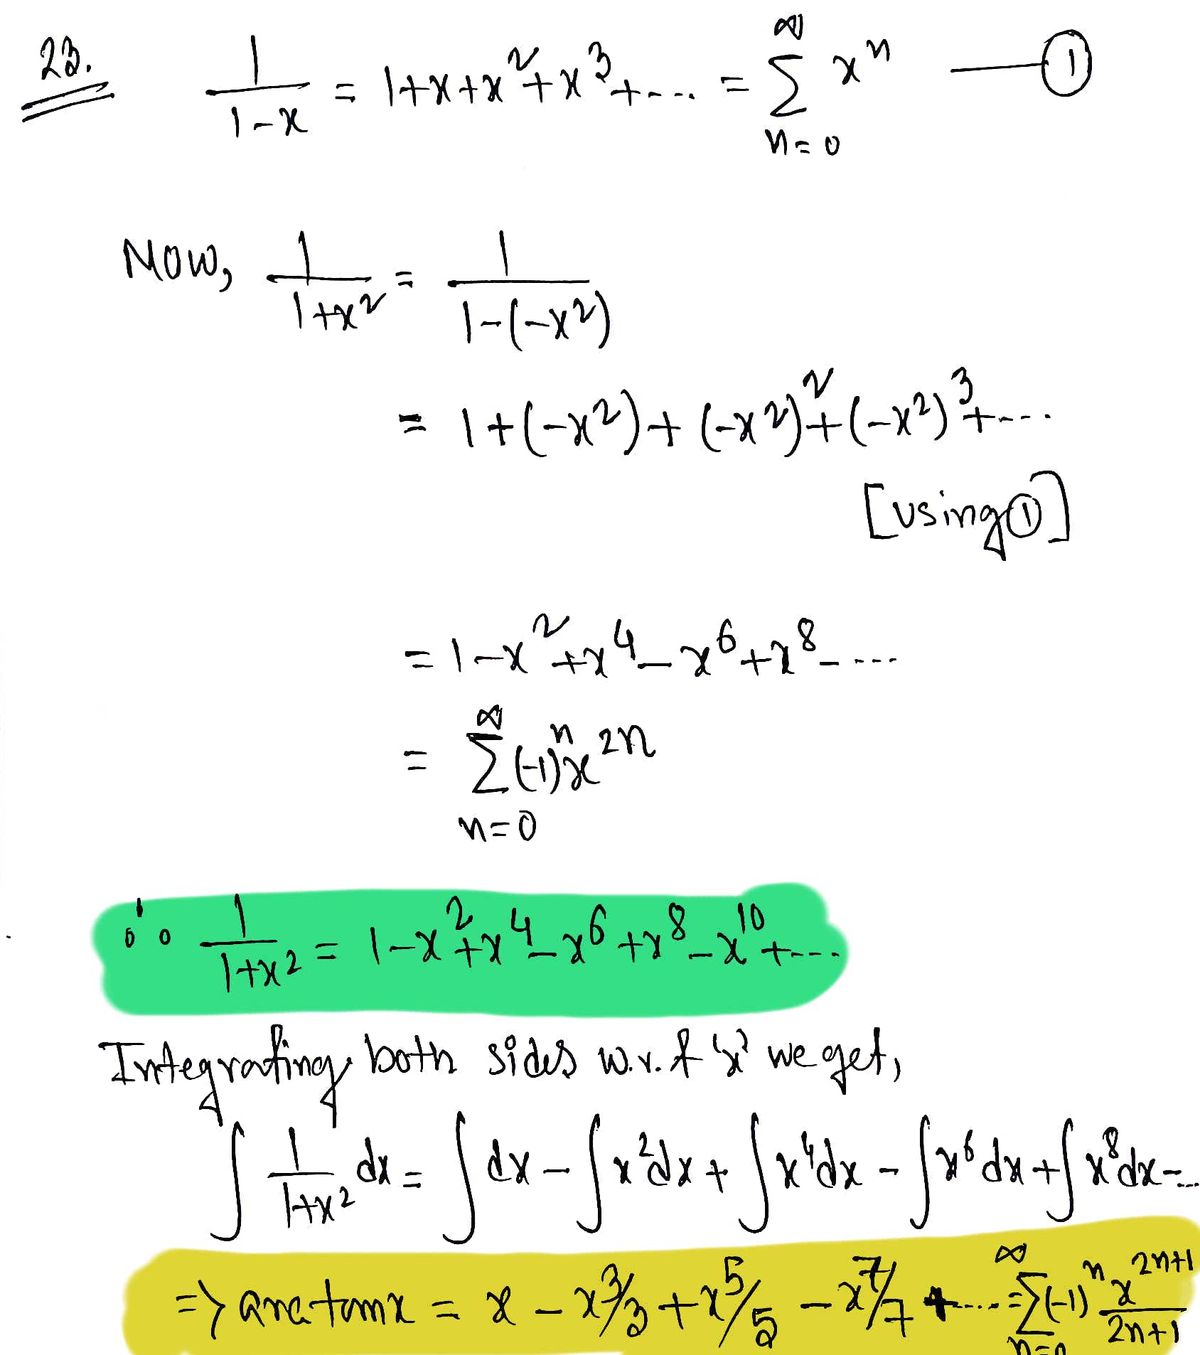 23. 1/(1-x) = 1+x+x²+x³+---- = ∑_{n=0}^{∞} xⁿ —— ①
Now, 1/(1+x²) = 1/(1-(-x²))
= 1+(-x²)+(-x²)²+(-x²)³+----
[using ①]
= 1-x²+x⁴-x⁶+x⁸-----
= ∑_{n=0}^{∞} (-1)ⁿ x²ⁿ
∴ 1/(1+x²) = 1-x²+x⁴-x⁶+x⁸-x¹⁰+----
Integrating both sides w.r.t 'x' we get,
∫ 1/(1+x²) dx = ∫dx - ∫x²dx + ∫x⁴dx - ∫x⁶dx + ∫x⁸dx -...
=> arc tan x = x - x³/3 + x⁵/5 - x⁷/7 + .... = ∑_{n=0}^{∞} (-1)ⁿ x²ⁿ⁺¹/(2n+1)